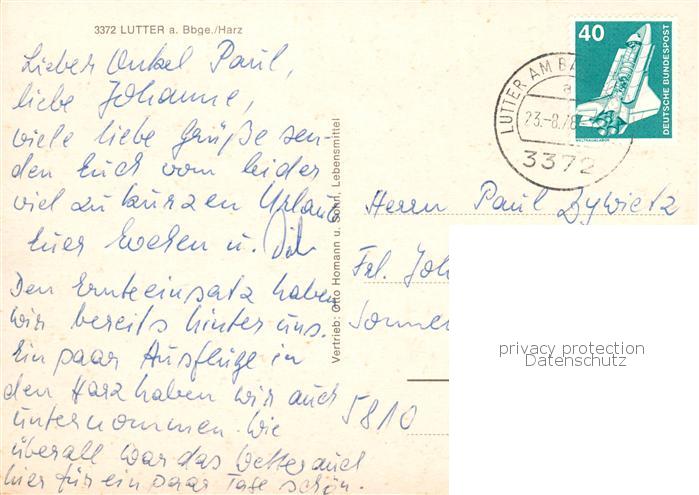 3372 LUTTER a. Bbge./Harz
Lieber Onkel Paul,
liebe Johanne,
viele liebe Grüße sen-
den Euch vom leider
viel zu kurzen Urlaub
hier u.
Den Ernteeinsatz haben
wir bereits hinter uns.
Ein paar Ausflüge in
den Harz haben wir auch
unternommen. Wie
überall war das Wetter auch
hier für ein paar Tage schön.
Vertrieb: Otto Homann u. Sohn, Lebensmittel
40
DEUTSCHE BUNDESPOST
WELTRAUMLABOR
LUTTER AM BA
a
23.-8.78
3372
Herrn Paul Zywietz
Frl. Joh
Sonne
5810
privacy protection
Datenschutz